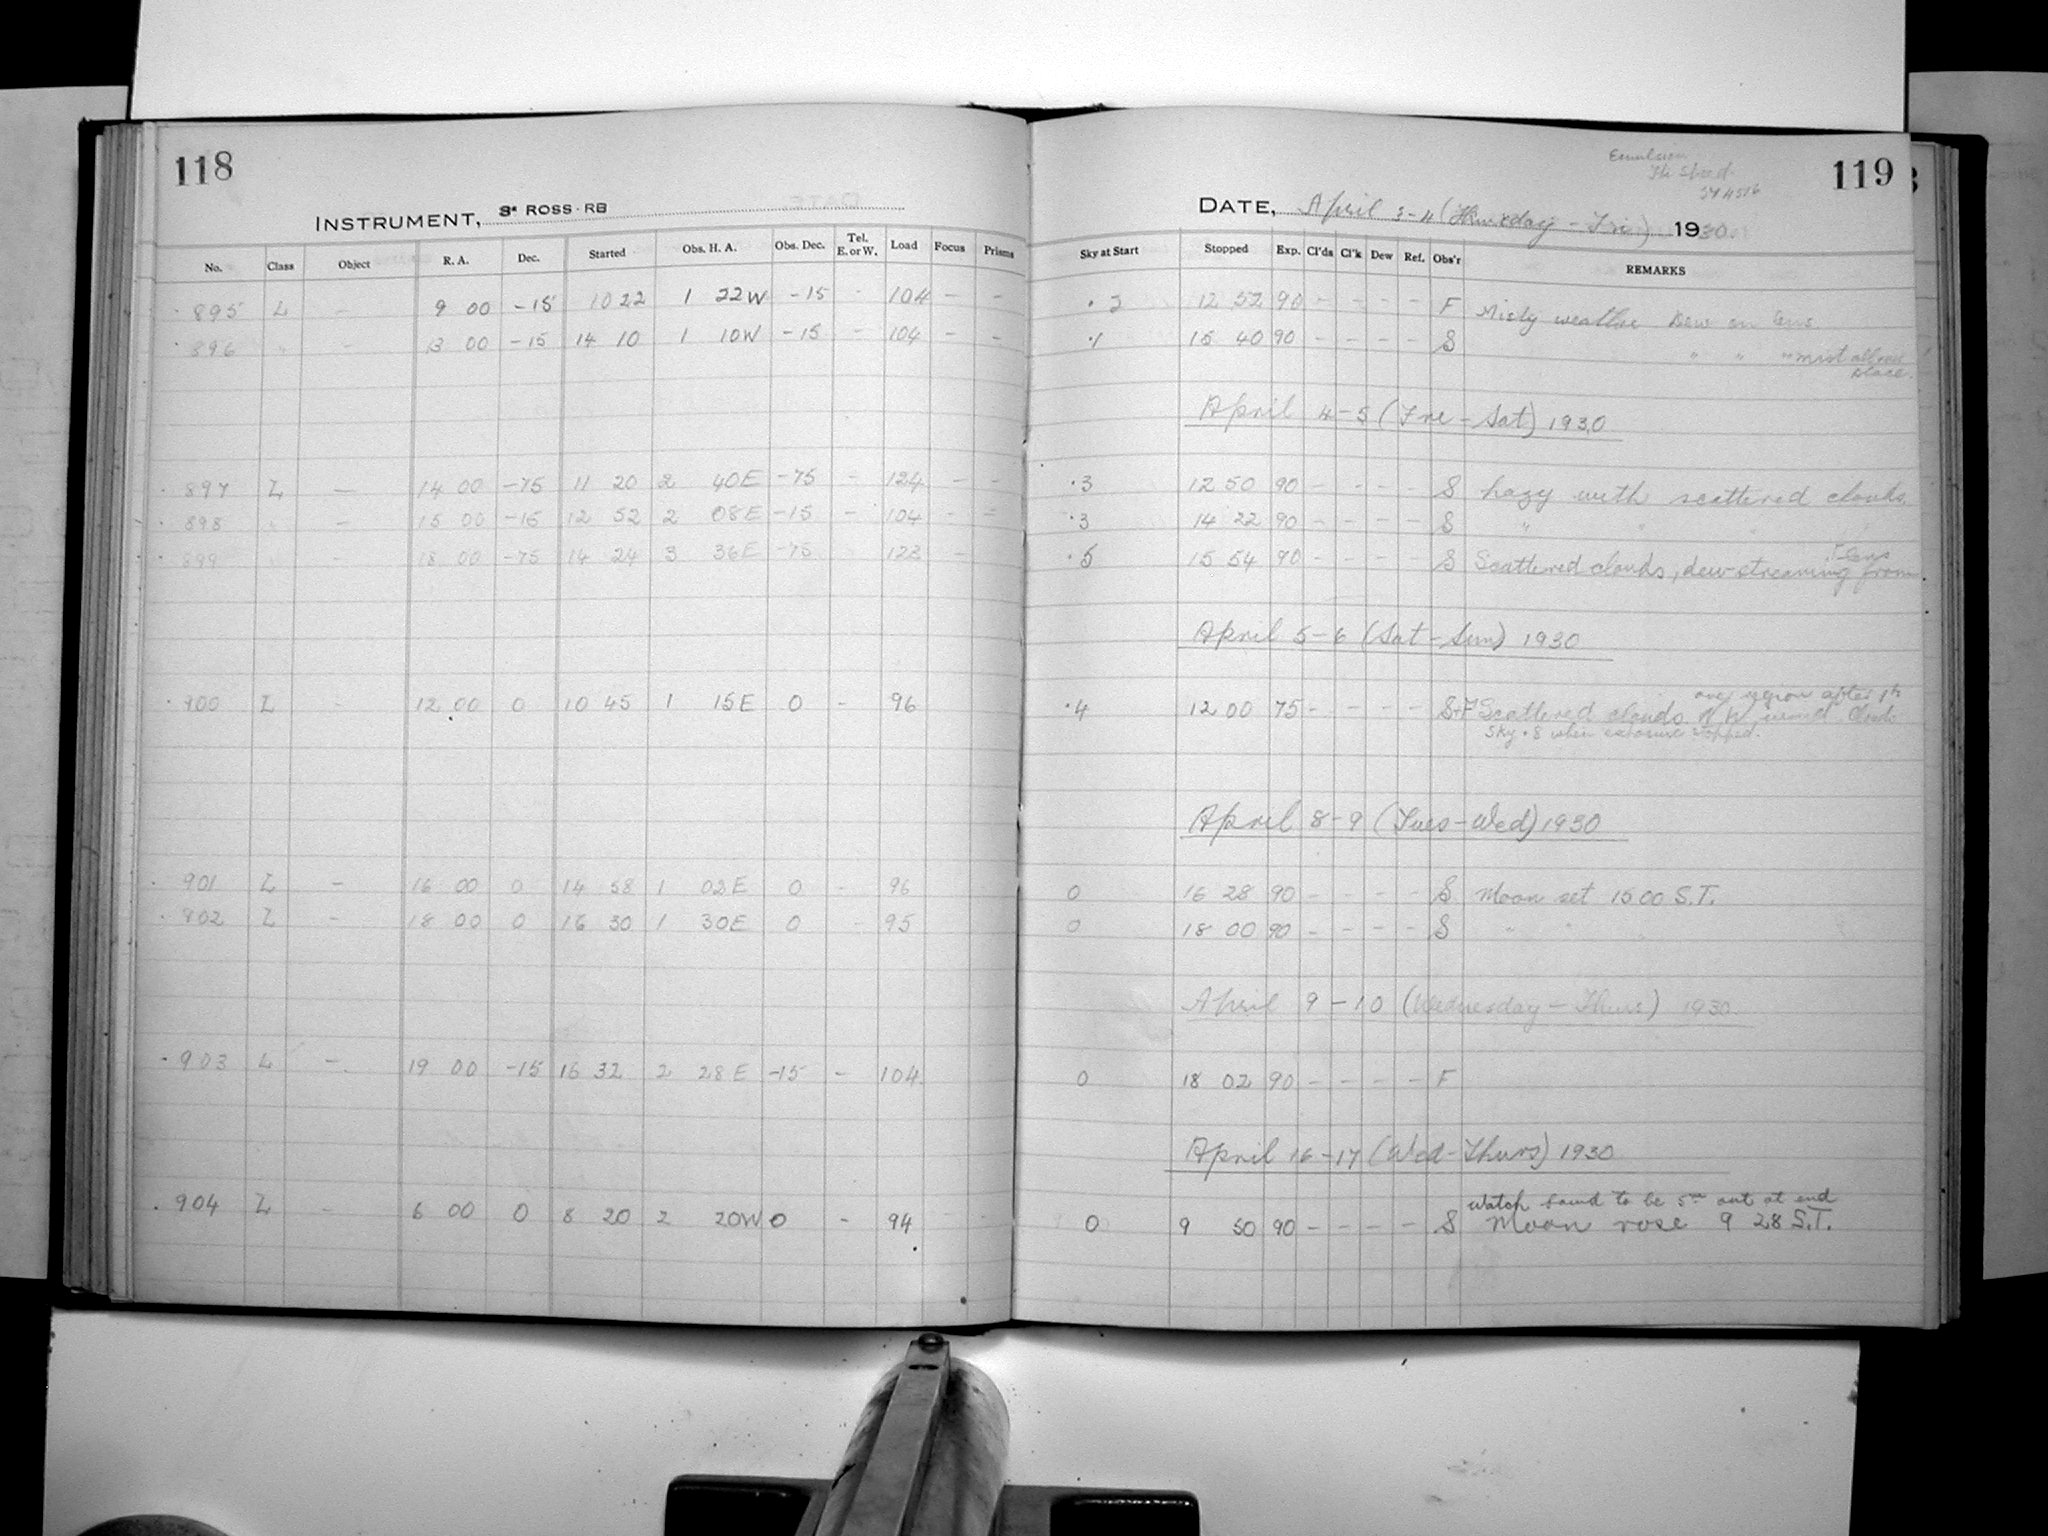 118
INSTRUMENT, 3" ROSS-RB
No. Class Object R. A. Dec. Started Obs. H. A. Obs. Dec. Tel. E. or W. Load Focus Prisms
895 L - 9 00 -15 10 22 1 22W -15 - 104 - -
896 " - 13 00 -15 14 10 1 10W -15 - 104 - -
897 L - 14 00 -75 11 20 2 40E -75 - 124 - -
898 " - 15 00 -15 12 52 2 08E -15 - 104 - -
899 " - 18 00 -75 14 24 3 36E -75 123 -
900 L - 12 00 0 10 45 1 15E 0 - 96
901 L - 16 00 0 14 58 1 02E 0 - 96
902 L - 18 00 0 16 30 1 30E 0 - 95
903 L - 19 00 -15 16 32 2 28E -15 - 104
904 L - 6 00 0 8 20 2 20W 0 - 94
119
Emulsion
DATE, April 3-4 (Thursday - Fri) 1930
Sky at Start Stopped Exp. Cl'ds Cl'k Dew Ref. Obs'r REMARKS
12 52 90 - - - - F Misty weather Dew on lens
.1 15 40 90 - - - - S " " " mist all over
place.
April 4-5 (Fri - Sat) 1930
.3 12 50 90 - - - - S hazy with scattered clouds.
.3 14 22 90 - - - - S " " " "
.5 15 54 90 - - - - S Scattered clouds, dew streaming from
lens
April 5-6 (Sat-Sun) 1930
.4 12 00 75 - - - - S+F Scattered clouds N W wind. Clouds
over region after 1h
Sky .8 when exposure stopped.
April 8-9 (Tues-Wed) 1930
0 16 28 90 - - - - S Moon set 15 00 S.T.
0 18 00 90 - - - - S " " "
April 9-10 (Wednesday - Thurs) 1930
0 18 02 90 - - - - F
April 16-17 (Wed-Thurs) 1930
watch found to be 5m out at end
0 9 50 90 - - - - S Moon rose 9 28 S.T.